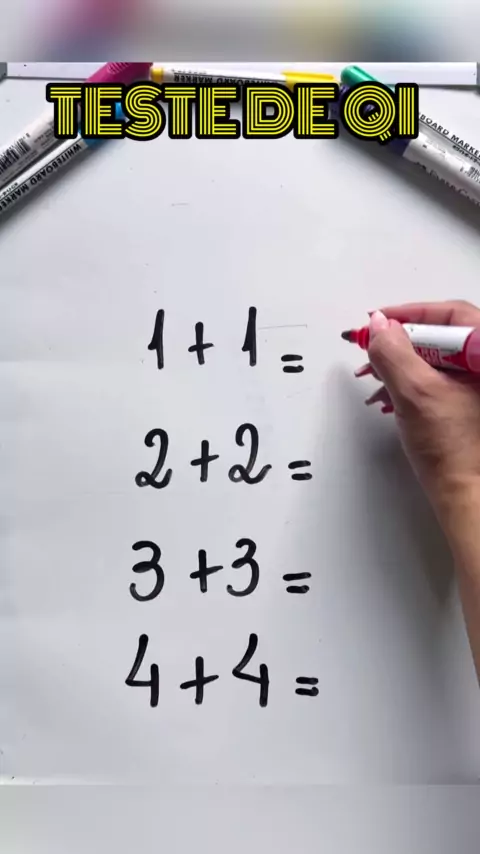 TESTE DE QI
BOARD MARKER
WHITEBOARD MARKER
1 + 1 =
2 + 2 =
3 + 3 =
4 + 4 =